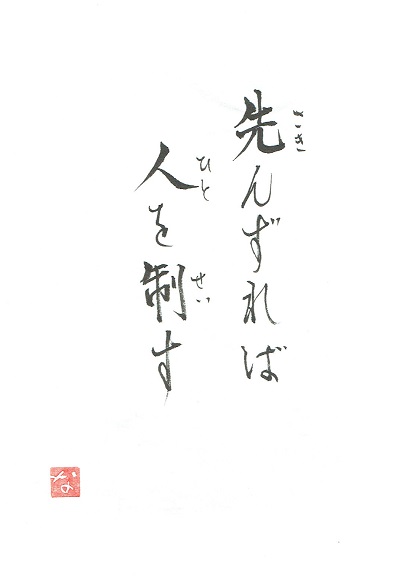 先んずれば
さき
人を制す
ひと
せい